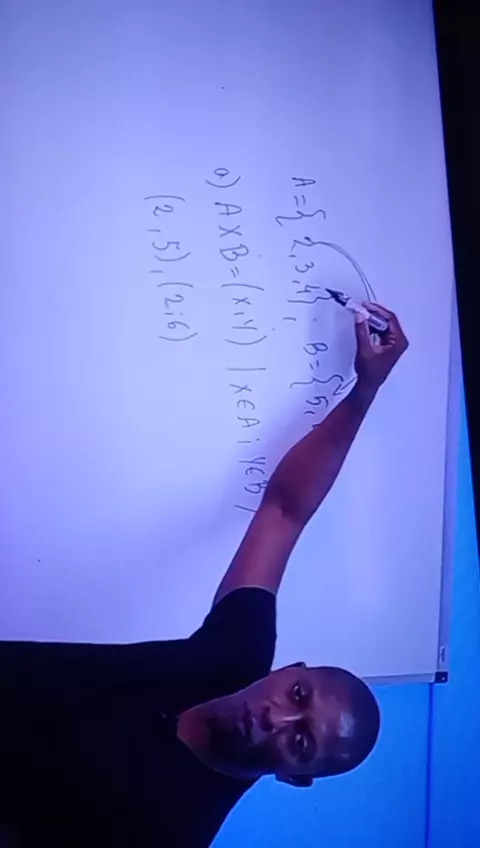 A = { 2, 3, 4 }, B = { 5,
a) A X B = (x, y) | x ∈ A i y ∈ B /
(2, 5), (2; 6)